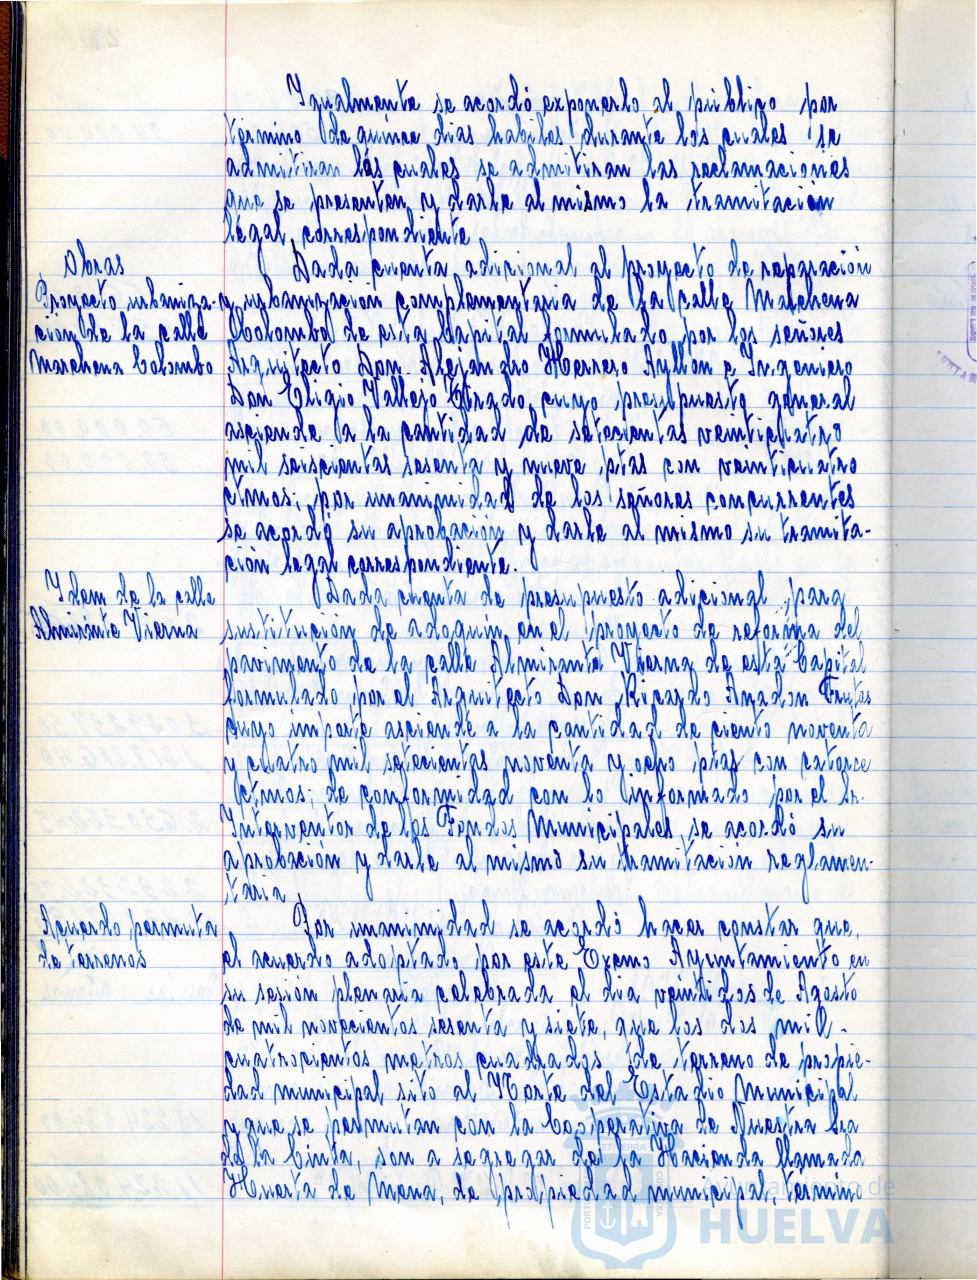 Igualmente se acordó exponerlo al público por
término de quince dias habiles durante los cuales se
admitiran las cuales se admitiran las reclamaciones
que se presenten y darle al mismo la tramitación
legal correspondiente
Obras
Proyecto urbaniza-
ción de la calle
Marchena Colombo
Dada cuenta adicional al proyecto de reparación
y urbanización complementaria de la calle Marchena
Colombo de esta Capital formulado por los señores
Arquitecto Don Alejandro Herrero Ayllón e Ingeniero
Don Eligio Vallejo Tirado, cuyo presupuesto general
asciende a la cantidad de setecientas veinticuatro
mil seiscientas sesenta y nueve ptas con veinticuatro
ctmos; por unanimidad de los señores concurrentes
se acordó su aprobación y darle al mismo su tramita-
ción legal correspondiente.
Idem de la calle
Almirante Vierna
Dada cuenta de presupuesto adicional para
sustitución de adoquin en el proyecto de reforma del
pavimento de la calle Almirante Vierna de esta Capital
formulado por el Arquitecto Don Ricardo Anadon Frutos
cuyo importe asciende a la cantidad de ciento noventa
y cuatro mil setecientas noventa y ocho ptas con catorce
ctmos; de conformidad con lo informado por el Sr.
Interventor de los Fondos Municipales, se acordó su
aprobación y darle al mismo su tramitación reglamen-
taria.
Acuerdo permuta
de terrenos
Por unanimidad se acordó hacer constar que,
el acuerdo adoptado por este Excmo Ayuntamiento en
su sesión plenaria celebrada el dia veintidos de Agosto
de mil novecientos sesenta y siete, que los dos mil
cuatrocientos metros cuadrados de terreno de propie-
dad municipal sito al Norte del Estadio Municipal
y que se permutan con la Cooperativa de Nuestra Sra
de la Cinta, son a segregar de la Hacienda llamada
Huerta de Mena, de propiedad municipal, termino
Ayuntamiento de
HUELVA